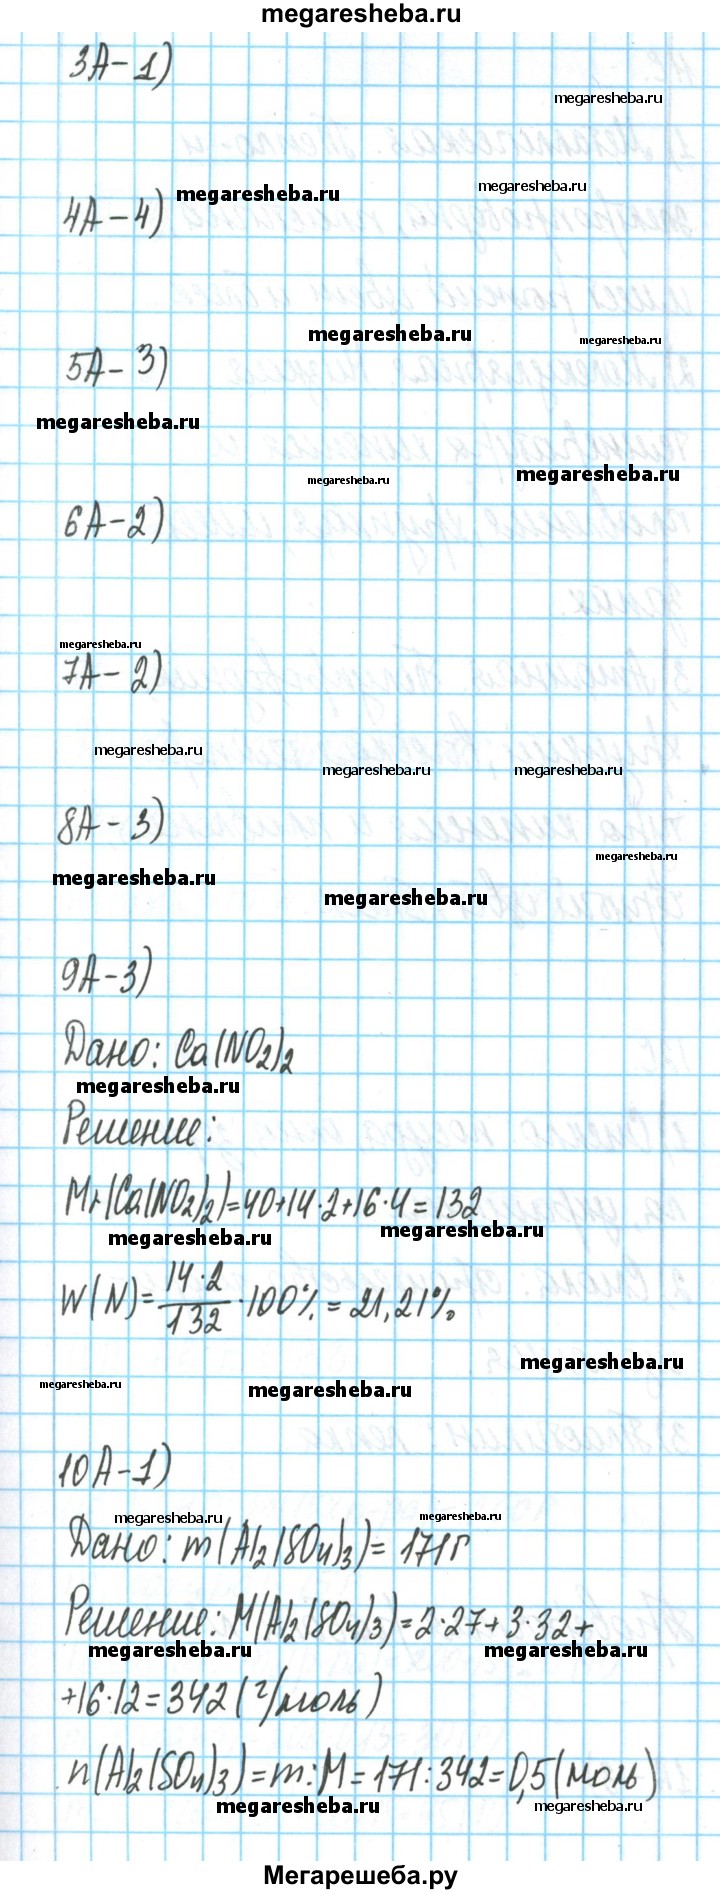 megaresheba.ru
3А-1)
megaresheba.ru
megaresheba.ru megaresheba.ru
4А-4)
megaresheba.ru megaresheba.ru
5А-3)
megaresheba.ru
megaresheba.ru megaresheba.ru
6А-2)
megaresheba.ru
7А-2)
megaresheba.ru
megaresheba.ru megaresheba.ru
8А-3)
megaresheba.ru
megaresheba.ru
megaresheba.ru
9А-3)
Дано: Ca(NO2)2
megaresheba.ru
Решение:
Mr(Ca(NO2)2)=40+14·2+16·4=132
megaresheba.ru megaresheba.ru
W(N)=14·2/132·100%=21,21%
megaresheba.ru
megaresheba.ru megaresheba.ru
10А-1)
megaresheba.ru megaresheba.ru
Дано: m(Al2(SO4)3)=171г
Решение: M(Al2(SO4)3)=2·27+3·32+
megaresheba.ru megaresheba.ru
+16·12=342(г/моль)
n(Al2(SO4)3)=m:M=171:342=0,5(моль)
megaresheba.ru megaresheba.ru
Мегарешеба.ру